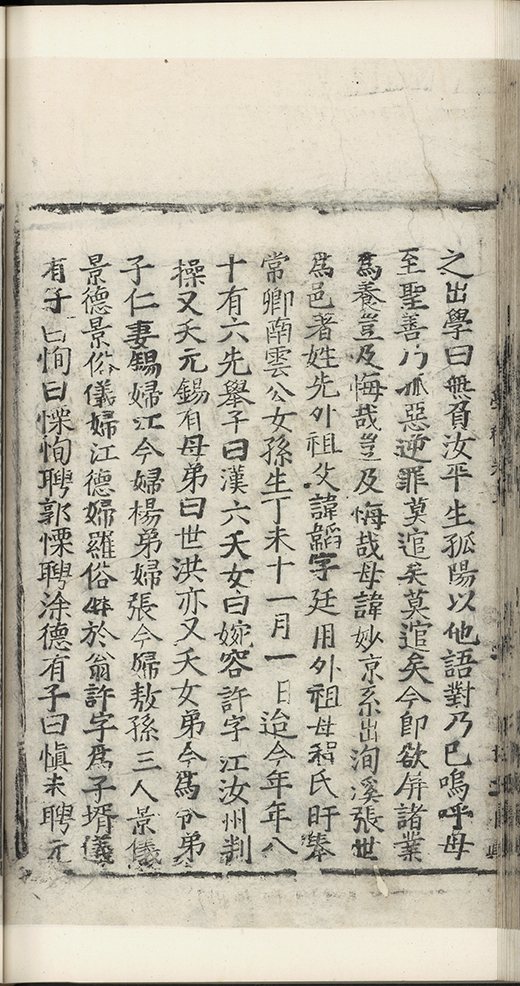 之出學曰無負汝平生孤陽以他語對乃已嗚呼母
至聖善乃孤惡逆罪莫逭矣莫逭矣今即欲屏諸業
爲養豈及悔哉豈及悔哉母諱妙京系出洵溪張世
爲邑著姓先外祖父諱韜字廷用外祖母程氏旴奉
常卿南雲公女孫生丁未十一月一日迨今年年八
十有六先舉子曰漢六夭女曰婉容許字江汝州判
操又夭元錫有母弟曰世洪亦又夭女弟今爲令弟
子仁妻錫婦江今婦楊弟婦張今婦敖孫三人景儀
景德景俗儀婦江德婦羅俗婦於翁許字爲子壻儀
有子曰恂曰慄恂聘郭慄聘涂德有子曰愼未聘元